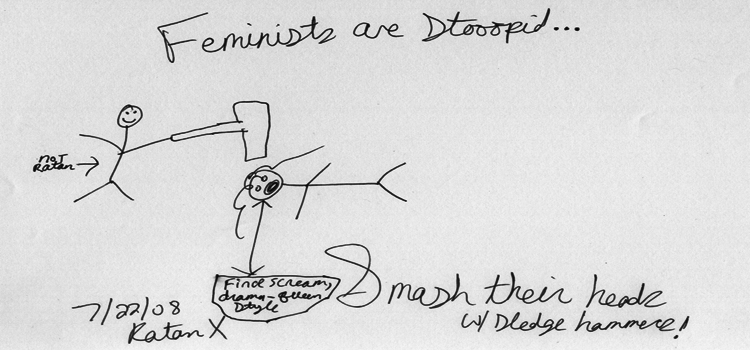 Feminists are Stooopid...
not
Ratan
Final scream,
drama-queen
Style
Smash their heads
w/ Sledge hammers!
7/22/08
Ratan X